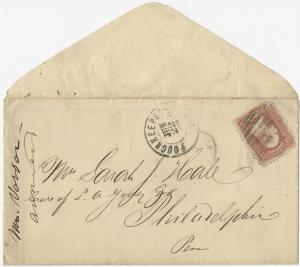 POUGHKEEPSIE
JUN
22
Mrs Sarah J. Hale,
Care of L. A. Godey Esq
Philadelphia
Penn
Mr. Vassar
answered